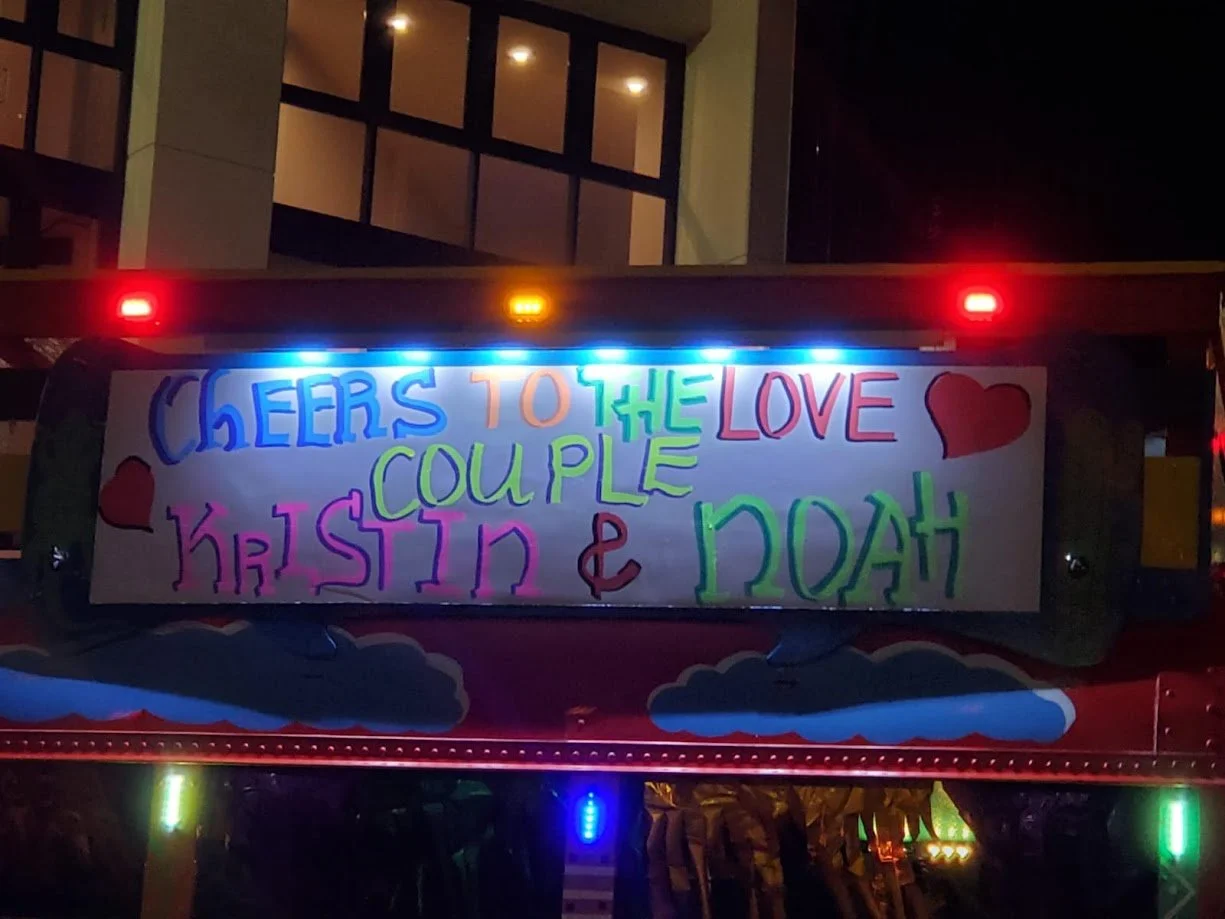 CHEERS TO THE LOVE
COUPLE
KRISTIN & NOAH